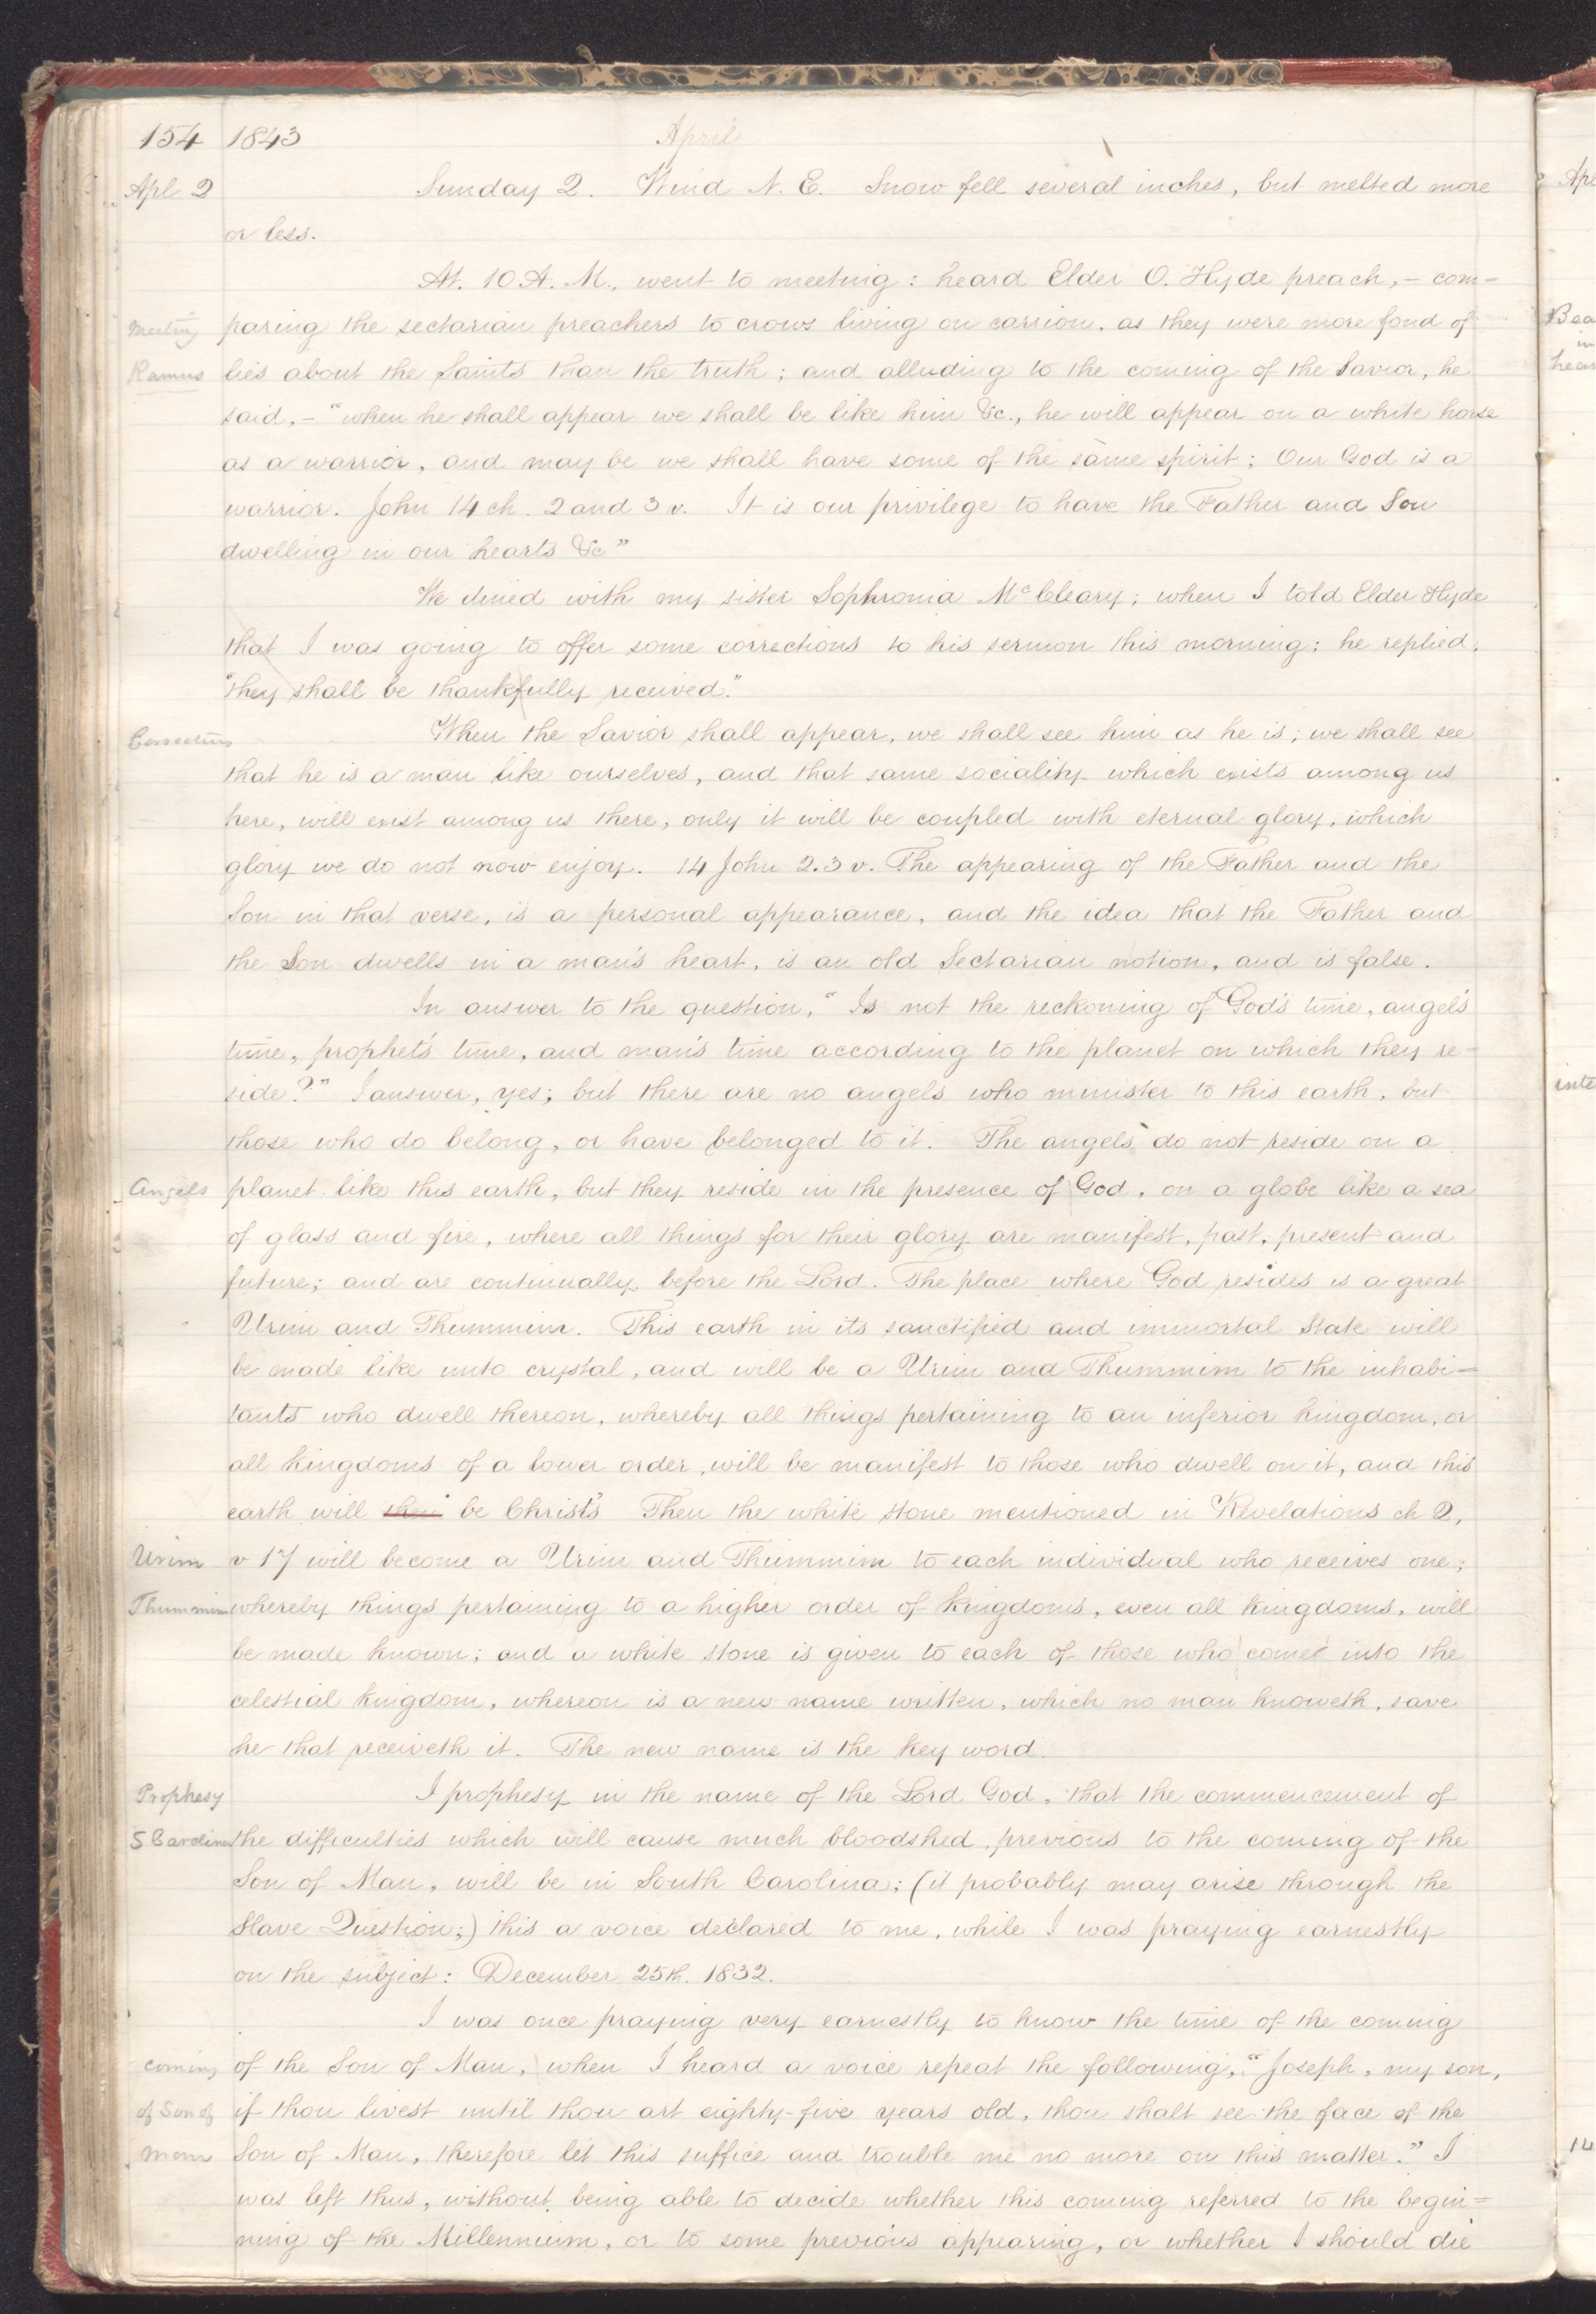 154 1843 April
Apl 2 Sunday 2. Wind N. E. Snow fell several inches, but melted more
or less.
At. 10 A. M., went to meeting: heard Elder O. Hyde preach, – com-
meeting paring the sectarian preachers to crows living on carrion, as they were more fond of
Ramus lies about the Saints than the truth; and alluding to the coming of the Savior, he
said, – "when he shall appear we shall be like him &c., he will appear on a white horse
as a warrior, and may be we shall have some of the same spirit; Our God is a
warrior. John 14 ch. 2 and 3 v. It is our privilege to have the Father and Son
dwelling in our hearts &c"
We dined with my sister Sophronia McCleary; when I told Elder Hyde
that I was going to offer some corrections to his sermon this morning; he replied,
"they shall be thankfully received."
Corrections When the Savior shall appear, we shall see him as he is; we shall see
that he is a man like ourselves, and that same sociality which exists among us
here, will exist among us there, only it will be coupled with eternal glory, which
glory we do not now enjoy. 14 John 2.3 v. The appearing of the Father and the
Son in that verse, is a personal appearance, and the idea that the Father and
the Son dwells in a man's heart, is an old Sectarian notion, and is false.
In answer to the question, "Is not the reckoning of God's time, angel's
time, prophet's time, and man's time according to the planet on which they re-
side?" I answer, yes; but there are no angels who minister to this earth, but
those who do belong, or have belonged to it. The angels do not reside on a
Angels planet like this earth, but they reside in the presence of God, on a globe like a sea
of glass and fire, where all things for their glory are manifest, past, present and
future; and are continually before the Lord. The place where God resides is a great
Urim and Thummim. This earth in its sanctified and immortal state will
be made like unto crystal, and will be a Urim and Thummim to the inhabi=
tants who dwell thereon, whereby all things pertaining to an inferior kingdom, or
all kingdoms of a lower order, will be manifest to those who dwell on it, and this
earth will then be Christ's Then the white stone mentioned in Revelations ch 2,
Urim v 17 will become a Urim and Thummim to each individual who receives one,
Thummim whereby things pertaining to a higher order of kingdoms, even all kingdoms, will
be made known; and a white stone is given to each of those who come into the
celestial kingdom, whereon is a new name written, which no man knoweth, save
he that receiveth it. The new name is the key word.
Prophesy I prophesy in the name of the Lord God, that the commencement of
S Carolina the difficulties which will cause much bloodshed, previous to the coming of the
Son of Man, will be in South Carolina; (it probably may arise through the
Slave Question;) this a voice declared to me, while I was praying earnestly
on the subject: December 25th. 1832.
I was once praying very earnestly to know the time of the coming
coming of the Son of Man, when I heard a voice repeat the following, "Joseph, my son,
of Son of if thou livest until thou art eighty-five years old, thou shalt see the face of the
man Son of Man, therefore let this suffice and trouble me no more on this matter." I
was left thus, without being able to decide whether this coming referred to the begin=
ning of the Millennium, or to some previous appearing, or whether I should die
Apl
Bea
in
hear
inte
14